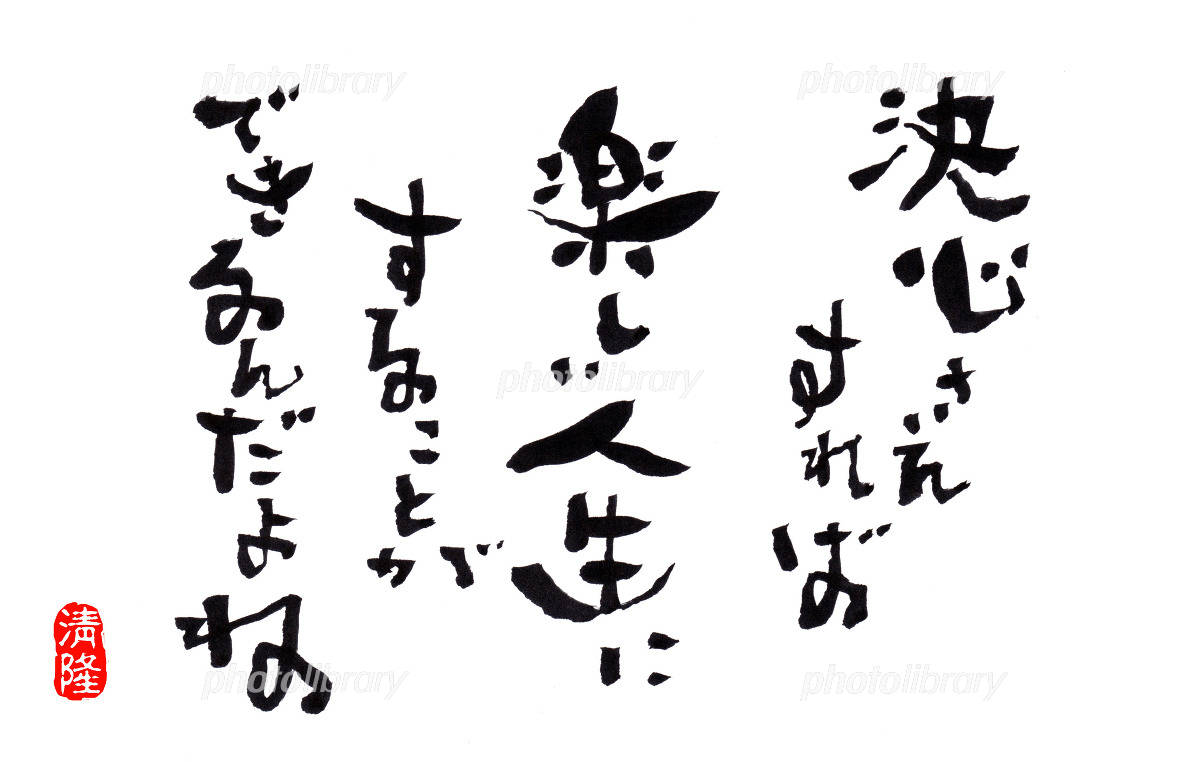 決心さえ
すれば
楽しい人生に
することが
できるんだよね
清隆
photolibrary
photolibrary
photolibrary
photolibrary
photolibrary